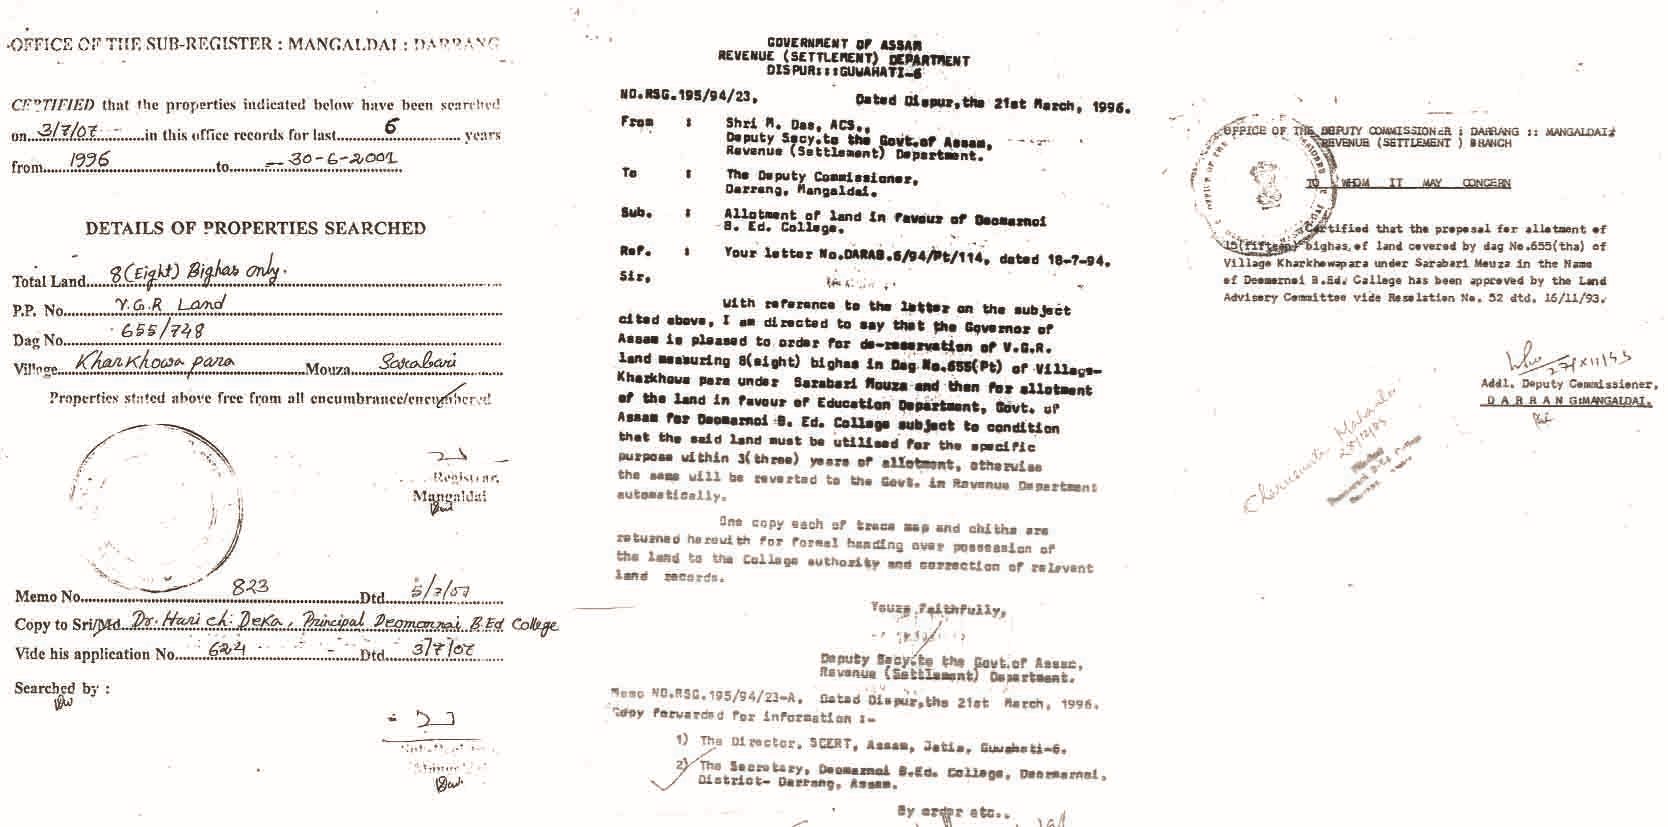 OFFICE OF THE SUB-REGISTER : MANGALDAI : DARRANG
CERTIFIED that the properties indicated below have been searched
on 3/7/07 in this office records for last 6 years
from 1996 to 30-6-2001
DETAILS OF PROPERTIES SEARCHED
Total Land 8 (Eight) Bighas only.
P.P. No V.G.R Land
Dag No 655/748
Village Kharkhowa para Mouza Sarabari
Properties stated above free from all encumbrance/encumbered
Registrar,
Mangaldai
Memo No. 823 Dtd 5/7/07
Copy to Sri/Md. Dr. Hari ch. Deka, Principal Deomornoi B.Ed College
Vide his application No. 624 Dtd. 3/7/07
Searched by :
GOVERNMENT OF ASSAM
REVENUE (SETTLEMENT) DEPARTMENT
DISPUR:::GUWAHATI-6
NO.RSG.195/94/23, Dated Dispur,the 21st March, 1996.
From : Shri M. Das, ACS.,
Deputy Secy.to the Govt.of Assam,
Revenue (Settlement) Department.
To : The Deputy Commissioner,
Darrang, Mangaldai.
Sub. : Allotment of land in favour of Deomarnoi
B. Ed. College.
Ref. : Your letter No.DARAB.6/94/Pt/114, dated 18-7-94.
Sir,
With reference to the letter on the subject
cited above, I am directed to say that the Governor of
Assam is pleased to order for de-reservation of V.G.R.
land measuring 8(eight) bighas in Dag No.655(Pt) of Village-
Kharkhowa para under Sarabari Mouza and then for allotment
of the land in favour of Education Department, Govt. of
Assam for Deomarnoi B. Ed. College subject to condition
that the said land must be utilised for the specific
purpose within 3(three) years of allotment, otherwise
the same will be reverted to the Govt. in Revenue Department
automatically.
One copy each of trace map and chitha are
returned herewith for formal handing over possession of
the land to the College authority and correction of relevant
land records.
Yours faithfully,
Deputy Secy.to the Govt.of Assam,
Revenue (Settlement) Department.
Memo NO.RSG.195/94/23-A, Dated Dispur,the 21st March, 1996.
Copy forwarded for information :-
1) The Director, SCERT, Assam, Guwahati-6.
2) The Secretary, Deomarnoi B.Ed. College, Deomarnoi,
District- Darrang, Assam.
By order etc..
OFFICE OF THE DEPUTY COMMISSIONER : DARRANG :: MANGALDAI:
REVENUE (SETTLEMENT ) BRANCH
TO WHOM IT MAY CONCERN
Certified that the proposal for allotment of
15(fifteen) bighas of land covered by dag No.655(tha) of
Village Kharkhewapara under Sarabari Mouza in the Name
of Deomernoi B.Ed. College has been approved by the Land
Advisory Committee vide Resolution No. 52 dtd. 16/11/93.
Addl. Deputy Commissioner,
DARRANG:MANGALDAI.